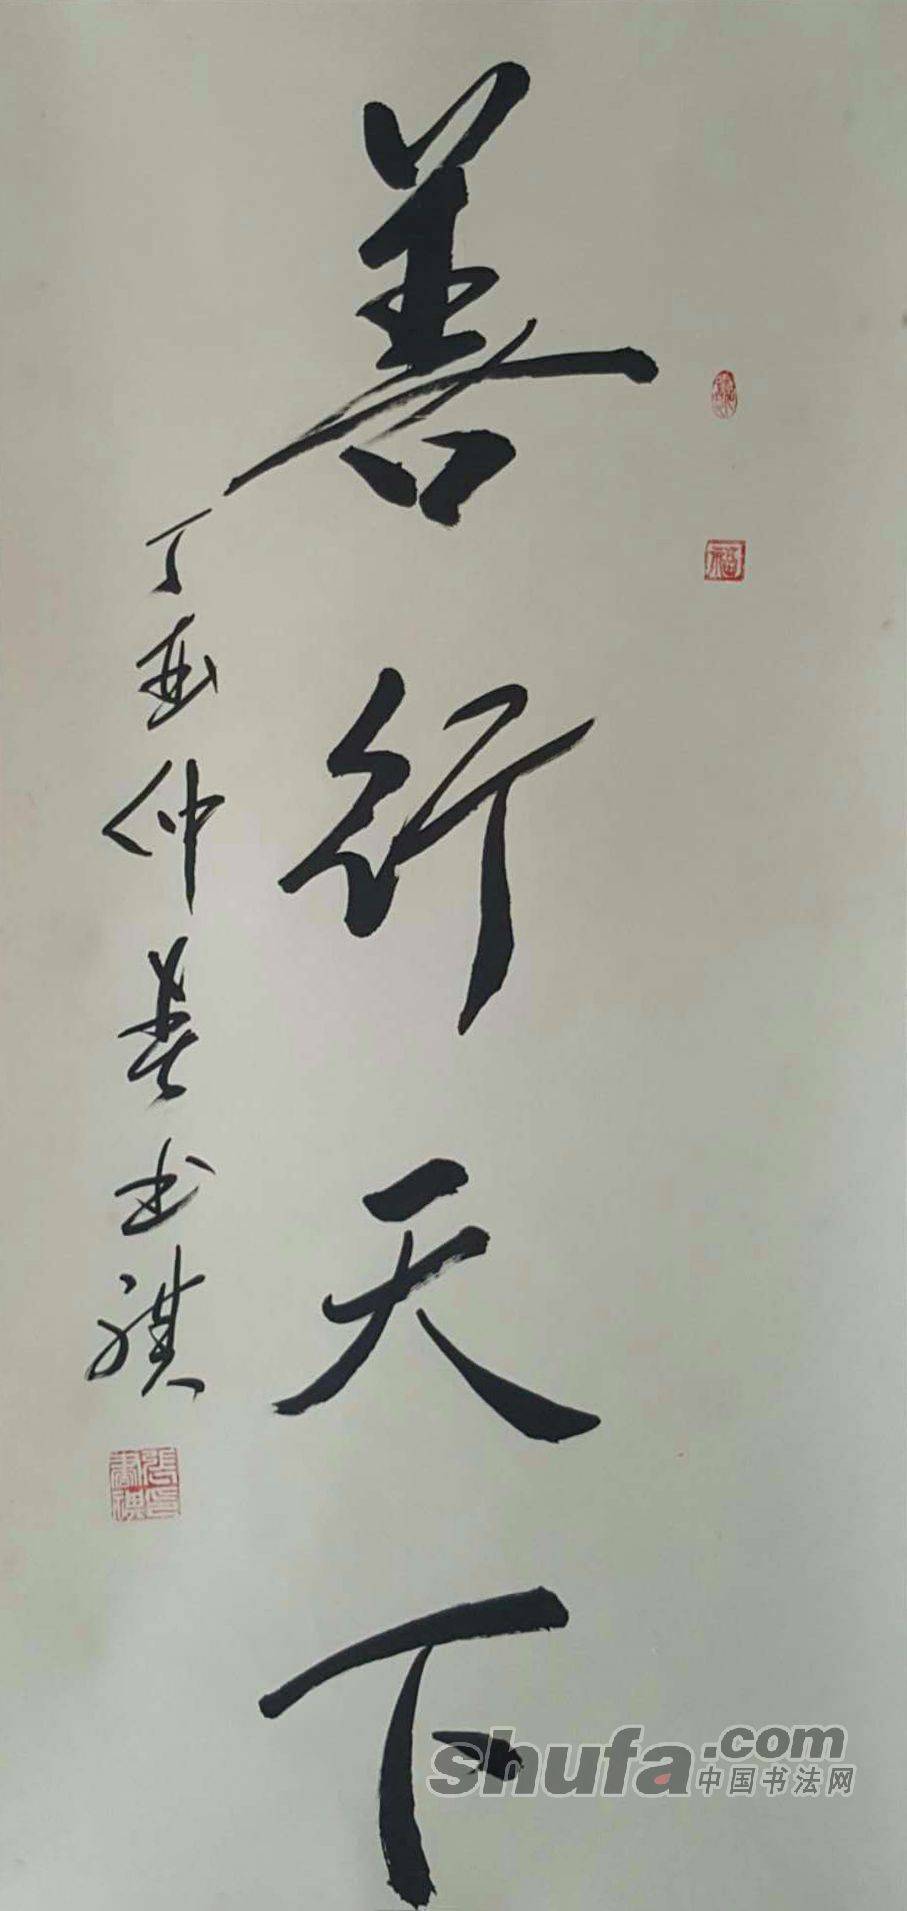 善行天下
丁酉仲春书祺
shufa.com
中国书法网